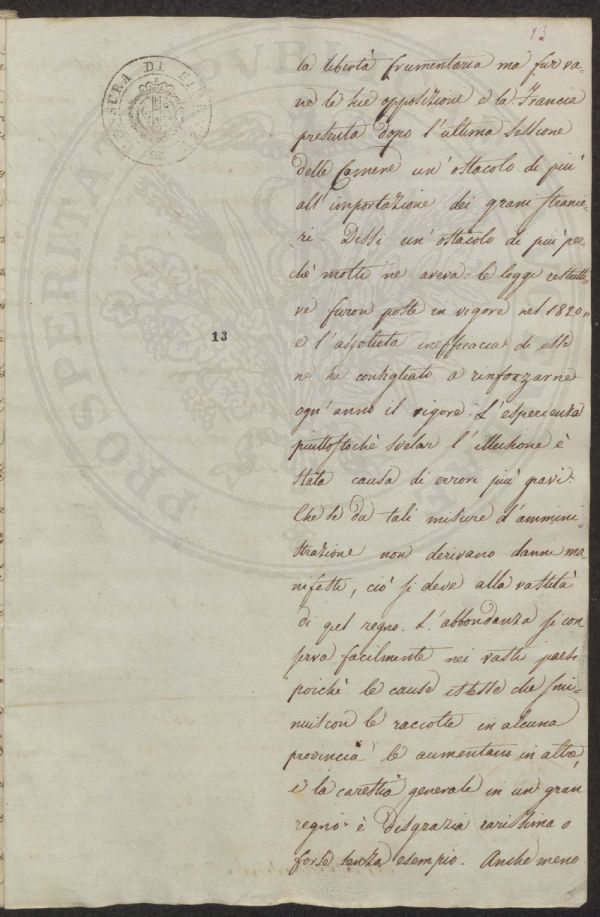 13
CENSURA DI
la libertà frumentaria ma furva=
ne le sue opposizione e la Francia
presenta dopo l'ultima sessione
delle Camere un' ostacolo di più
all' importazione dei grani stranie=
ri. Dissi un' ostacolo di più per=
chè molti ne aveva: le leggi restritti=
ve furon poste in vigore nel 1820 "
e l'assoluta inefficacia di esse
ne ha consigliato a rinforzarne
ogn' anno il vigore. L'esperienza
piuttostochè svelar l'illusione è
stata causa di errori più gravi.
Che se da tali misure d'ammini=
strazione non derivano danni ma
nifesti, ciò si deve alla vastità
di quel regno. L'abbondanza si con
serva facilmente nei vasti paesi
poichè le cause istesse che smi=
nuiscon le raccolte in alcuna
provincia le aumentano in altre,
e la carestia generale in un gran
regno è disgrazia rarissima o
forse senza esempio. Anche meno
13
PROSPERITA
PVBLI